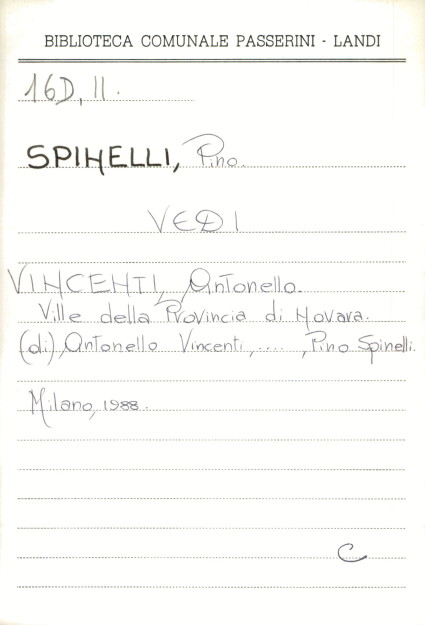 BIBLIOTECA COMUNALE PASSERINI - LANDI
16D, II.
SPINELLI, Pino.
VEDI
VINCENTI, Antonello.
Ville della Provincia di Novara.
(di), Antonello Vincenti, ...., Pino Spinelli.
Milano, 1988.
C